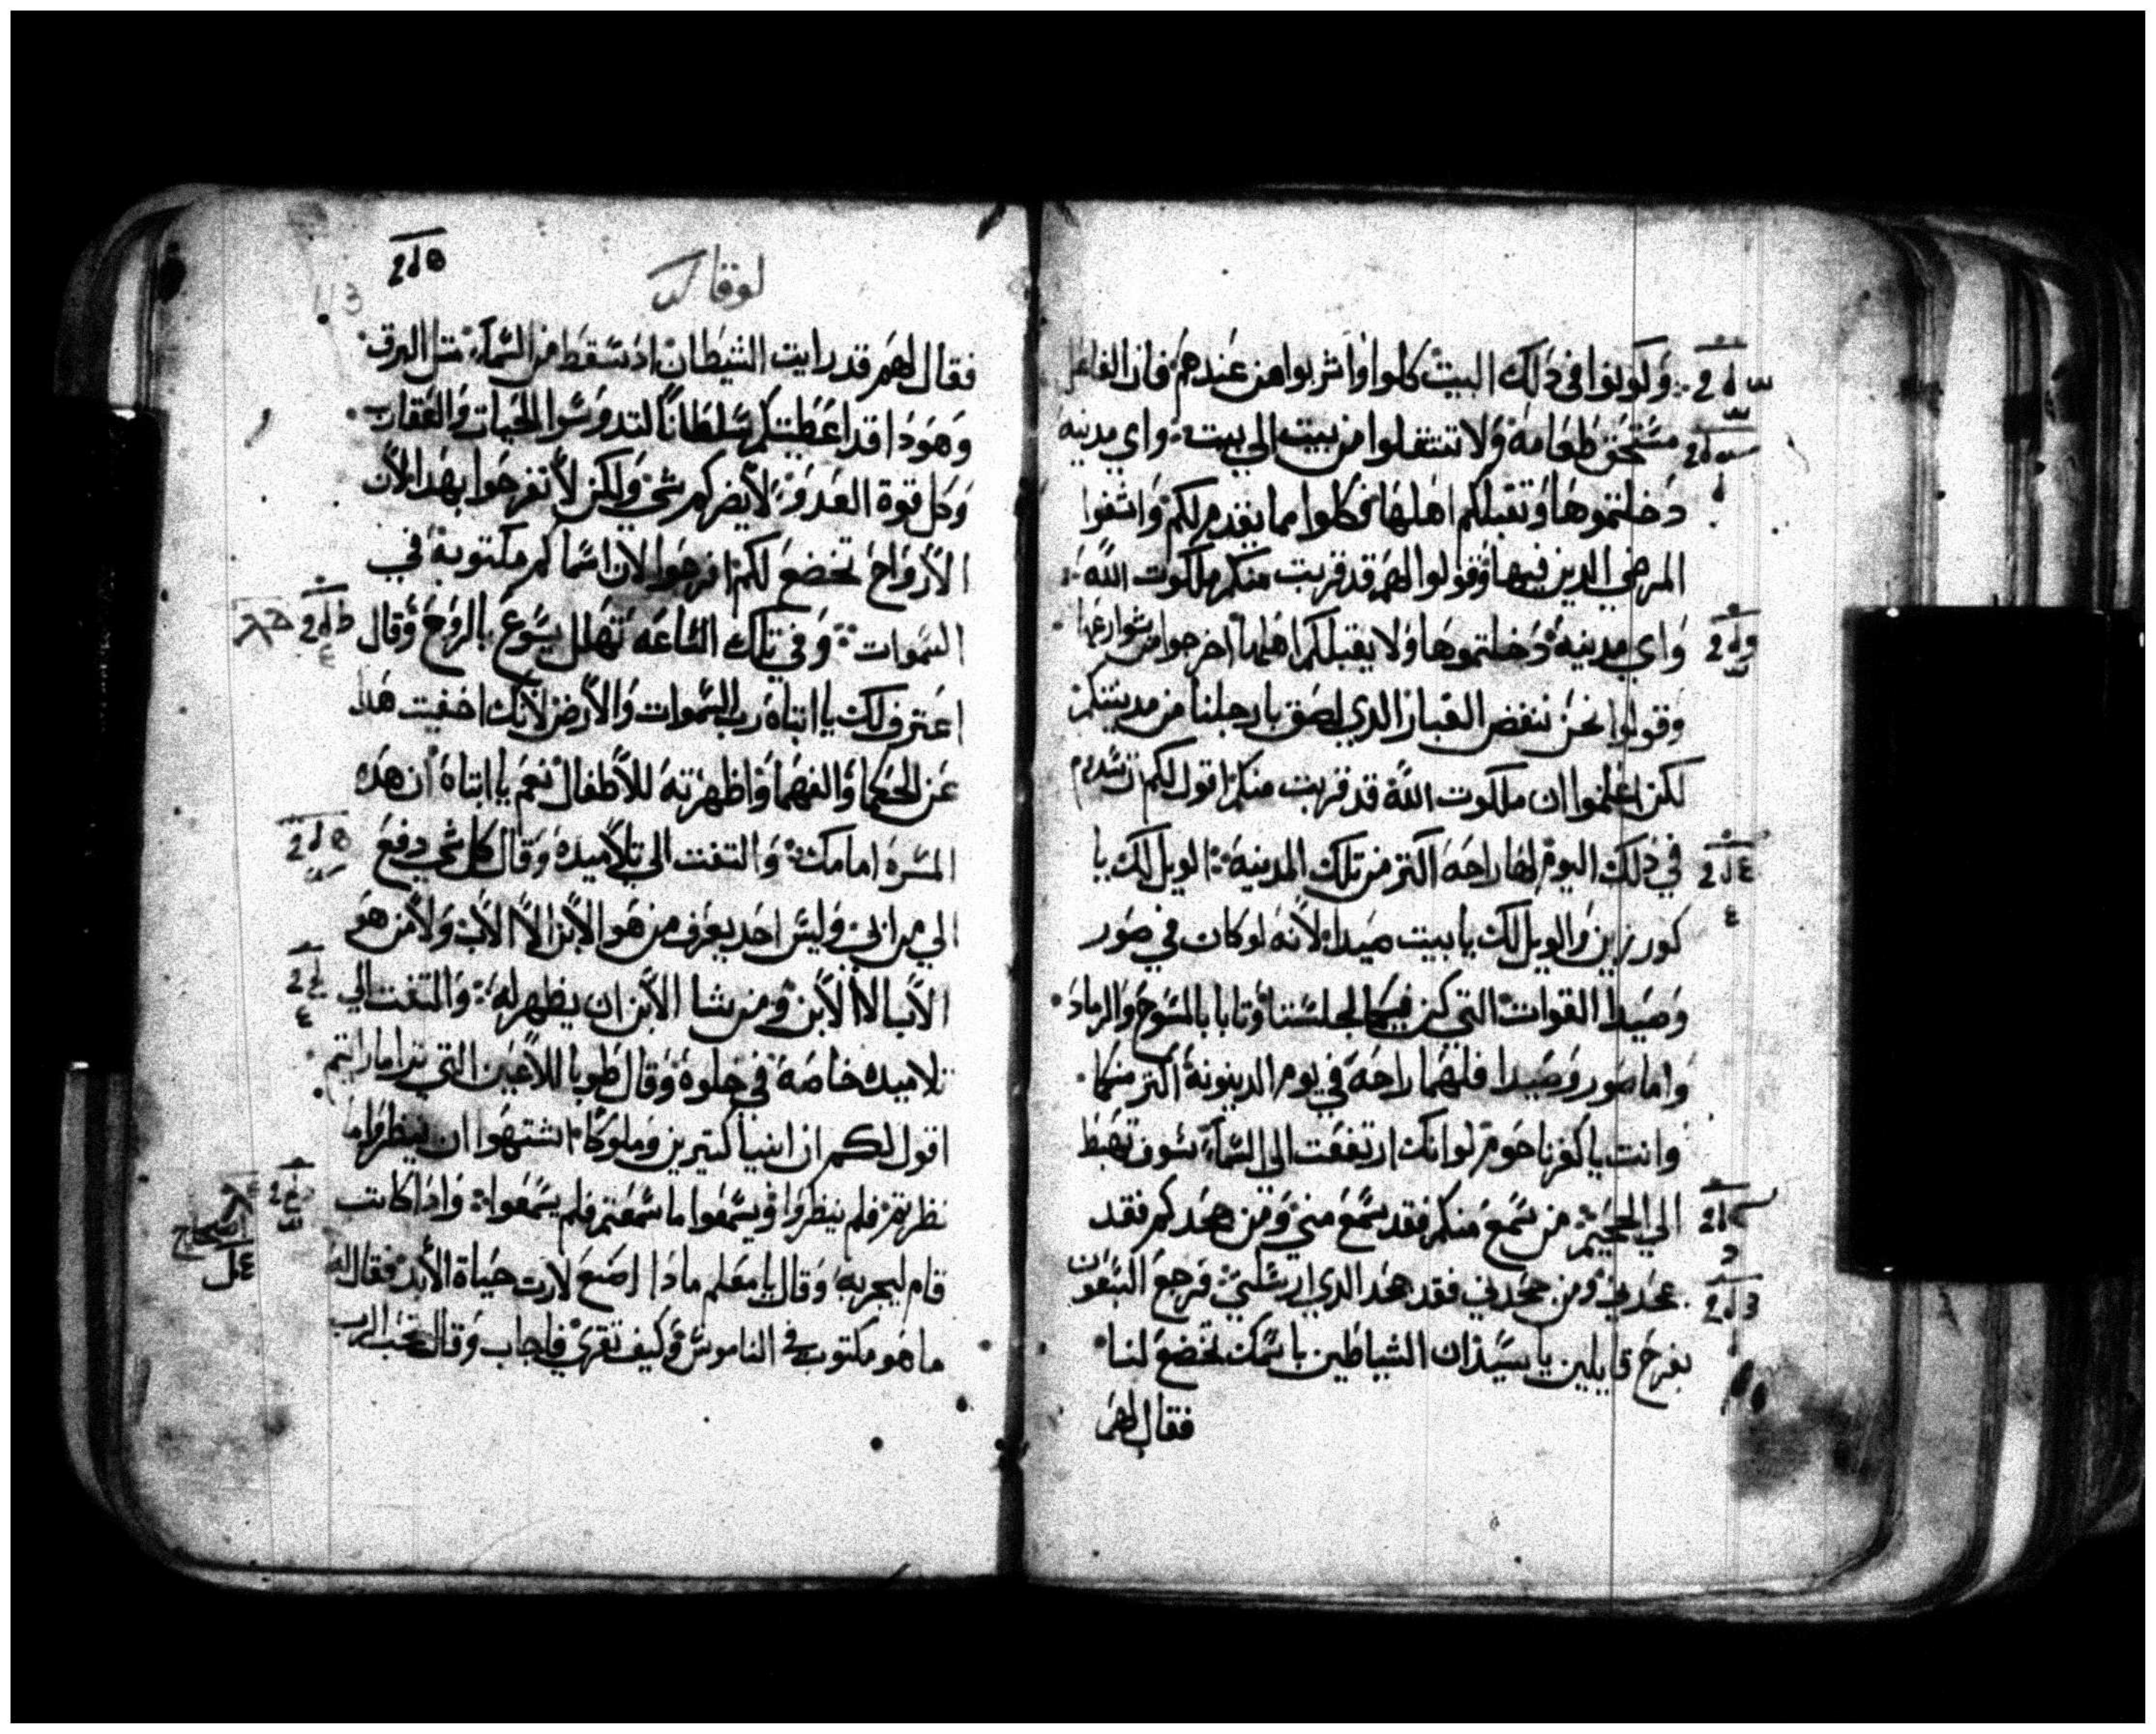 وكونوا في ذلك البيت كلوا واشربوا من عندهم فان الفاعل
مستحق طعامه ولا تنتقلوا من بيت الي بيت واي مدينه
دخلتموها وتقبلكم اهلها فكلوا مما يقدم لكم واشفوا
المرضي الدين فيها وقولوا لهم قد قربت منكم ملكوت الله
واي مدينه دخلتموها ولا يقبلكم اهلها اخرجوا من شوارعها
وقولوا نحن ننفض الغبار الدي لصق بارجلنا من مدينتكم
لكن اعلموا ان ملكوت الله قد قربت منكم اقول لكم ان سدوم
في ذلك اليوم لها راحه اكتر من تلك المدينه الويل لك يا
كورزين والويل لك يا بيت صيدا لانه لو كان في صور
وصيدا القوات التي كن فيكما لجلستا وتابا بالمسوح والرماد
واما صور وصيدا فلهما راحه في يوم الدينونه اكتر منكما
وانت يا كفرناحوم لو انك ارتفعت الي السماء سوف تهبط
الي الجحيم من سمع منكم فقد سمع مني ومن جحدكم فقد
جحدني ومن جحدني فقد جحد الدي ارسلني فرجع السبعون
بفرح قايلين يا سيد ان الشياطين باسمك تخضع لنا
فقال لهم
لوقا
43
فقال لهم قد رايت الشيطان اد سقط من السماء متل البرق
وهودا قد اعطيتكم سلطانا لتدوسوا الحيات والعقارب
وكل قوة العدو ولا يضركم شي ولكن لا تفرحوا بهدا لان
الارواح تخضع لكم افرحوا لان اسماكم مكتوبه في
السموات وفي تلك الساعه تهلل يسوع بالروح وقال
اعترف لك يا ابتاه رب السموات والارض لانك اخفيت هدا
عن الحكما والفهما واظهرته للاطفال نعم يا ابتاه ان هده
المسره امامك والتفت الي تلاميده وقال كل شي دفع
الي من ابي وليس احد يعرف من هو الابن الا الاب ولا من هو
الاب الا الابن ومن يشا الابن ان يظهر له والتفت الي
تلاميده خاصه في خلوه وقال طوبا للاعين التي ترا ما رايتم
اقول لكم ان انبيا كتيرين وملوكا اشتهوا ان ينظروا ما
نظرتم فلم ينظروا ويسمعوا ما سمعتم فلم يسمعوا وادا كاتب
قام ليجربه وقال يا معلم مادا اصنع لارت حياة الابد فقال له
ما هو مكتوب في الناموس وكيف تقري فاجاب وقال تحب الرب